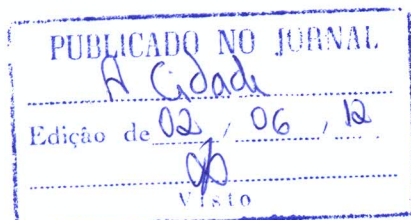 PUBLICADO NO JORNAL
A Cidade
Edição de 02 / 06 / 12
Visto